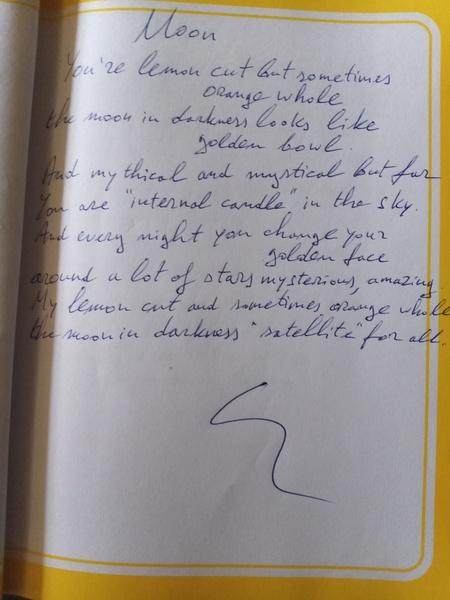 Moon
You're lemon cut but sometimes
orange whole
the moon in darkness looks like
golden bowl.
And mythical and mystical but far
You are "internal candle" in the sky.
And every night you change your
golden face
around a lot of stars mysterious, amazing.
My lemon cut and sometimes orange whole
the moon in darkness "satellite" for all.